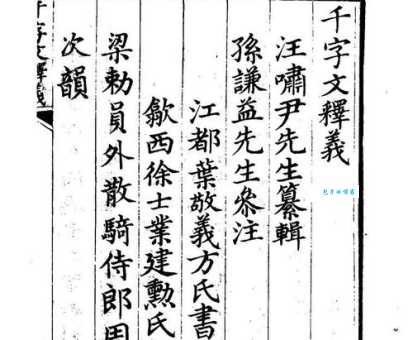 千字文釋義
汪嘯尹先生纂輯
孫謙益先生參注
江都葉敬義方氏書
歙西徐士業建勲氏
梁勅員外散騎侍郎周
次韻
千字文釋義